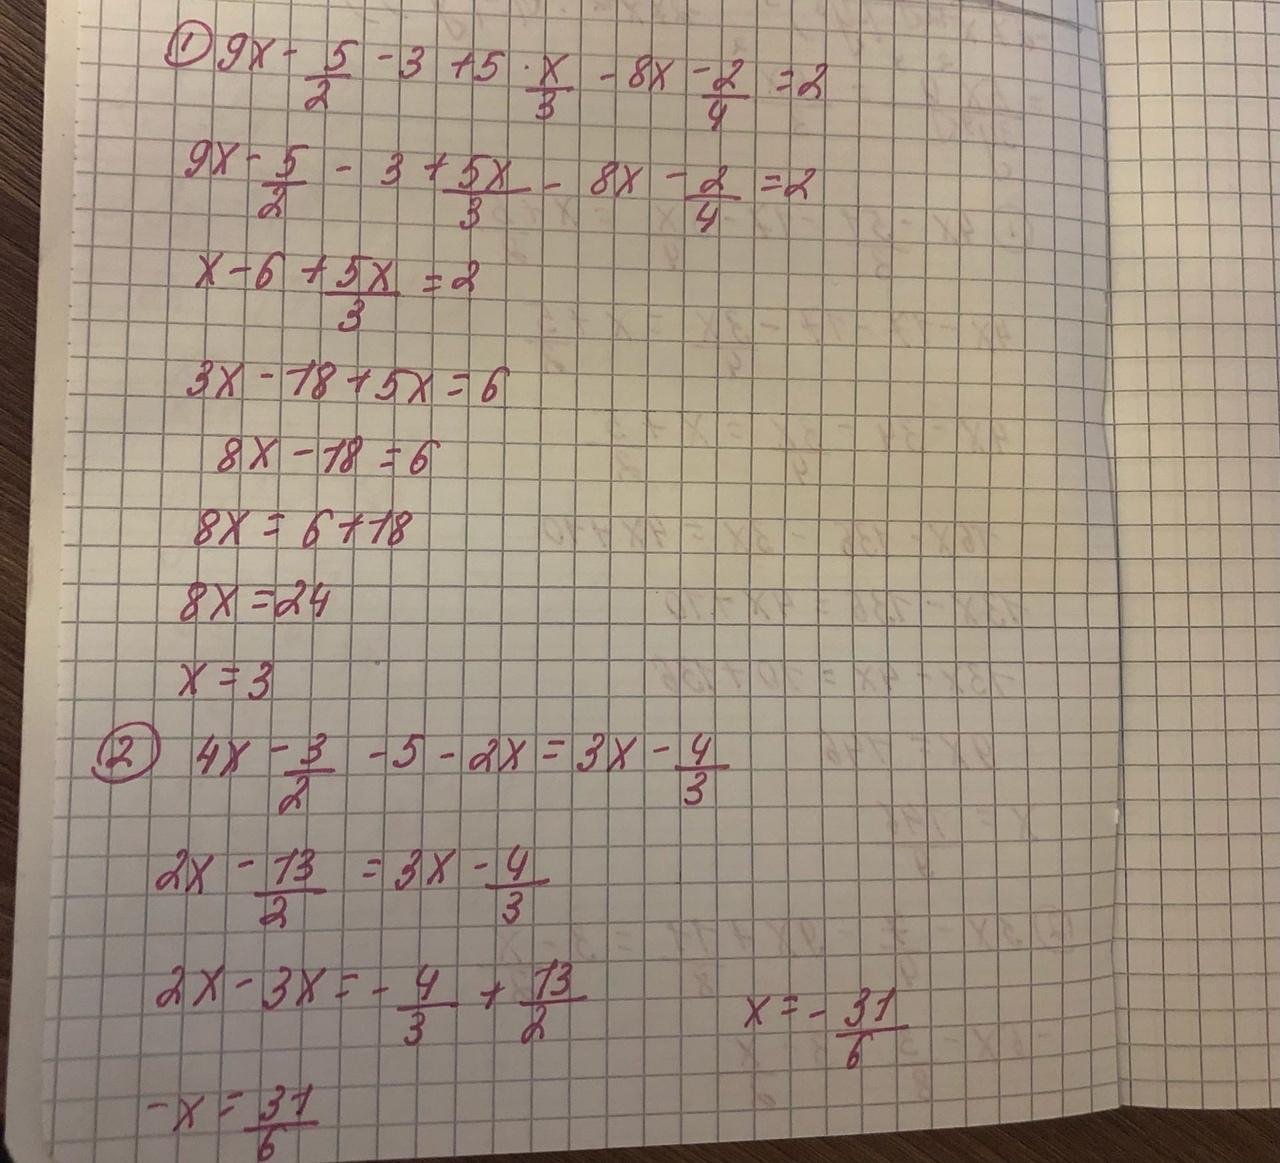 ① 9x - 5/2 - 3 + 5 · x/3 - 8x - 2/4 = 2
9x - 5/2 - 3 + 5x/3 - 8x - 2/4 = 2
x - 6 + 5x/3 = 2
3x - 18 + 5x = 6
8x - 18 = 6
8x = 6 + 18
8x = 24
x = 3
② 4x - 3/2 - 5 - 2x = 3x - 4/3
2x - 13/2 = 3x - 4/3
2x - 3x = - 4/3 + 13/2
x = - 31/6
-x = 31/6